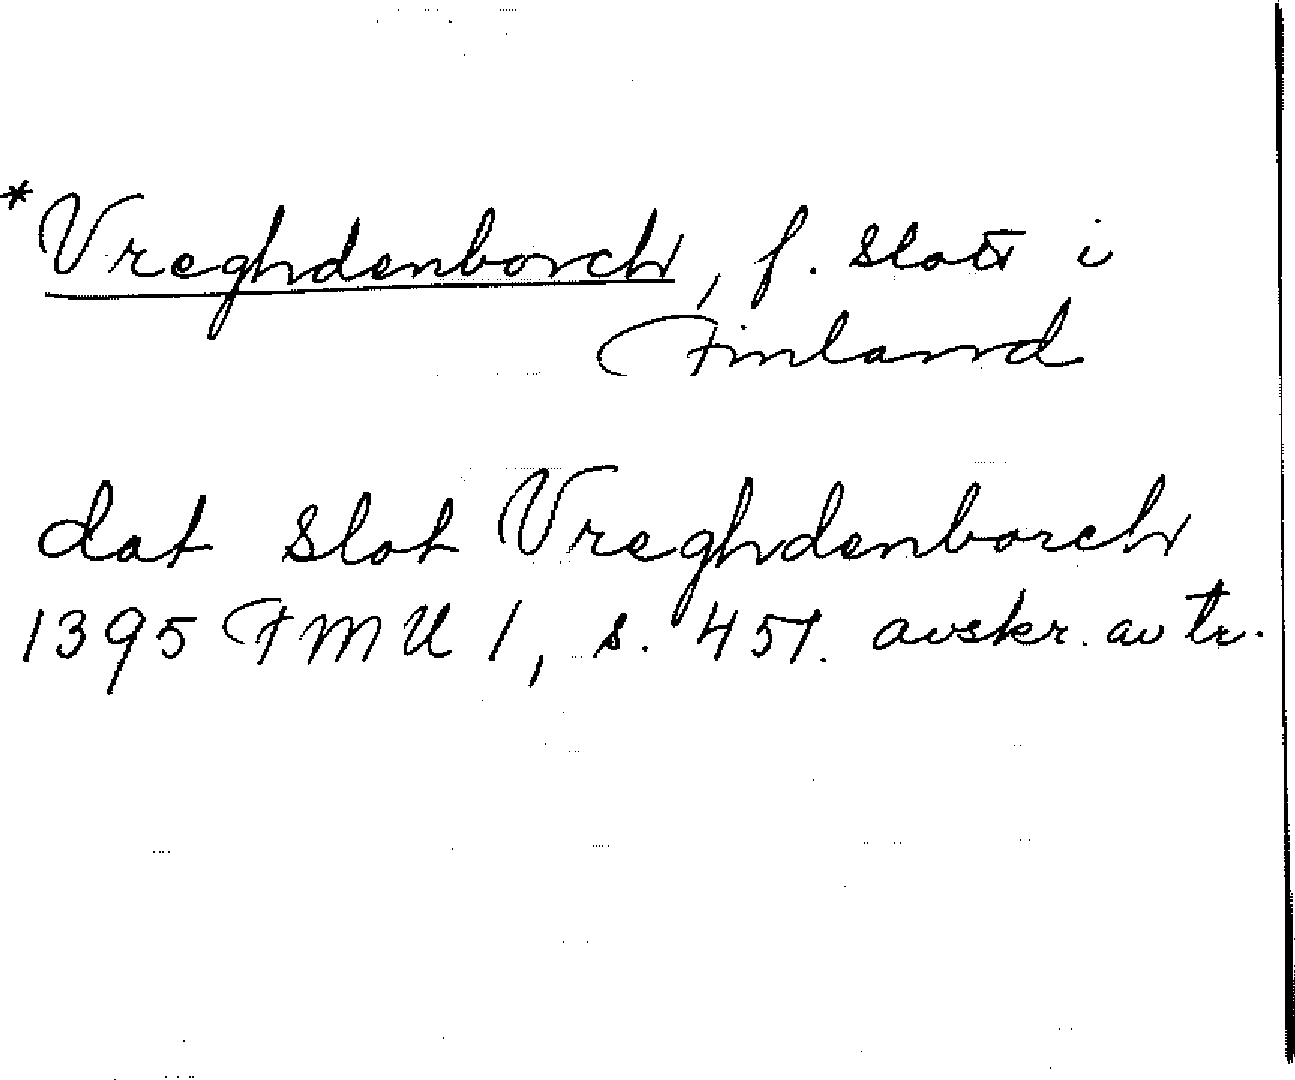 *Vreghdenborch, f. slott i
Finland
dat slot Vreghdenborch
1395 FMU 1, s. 457. avskr. av tr.